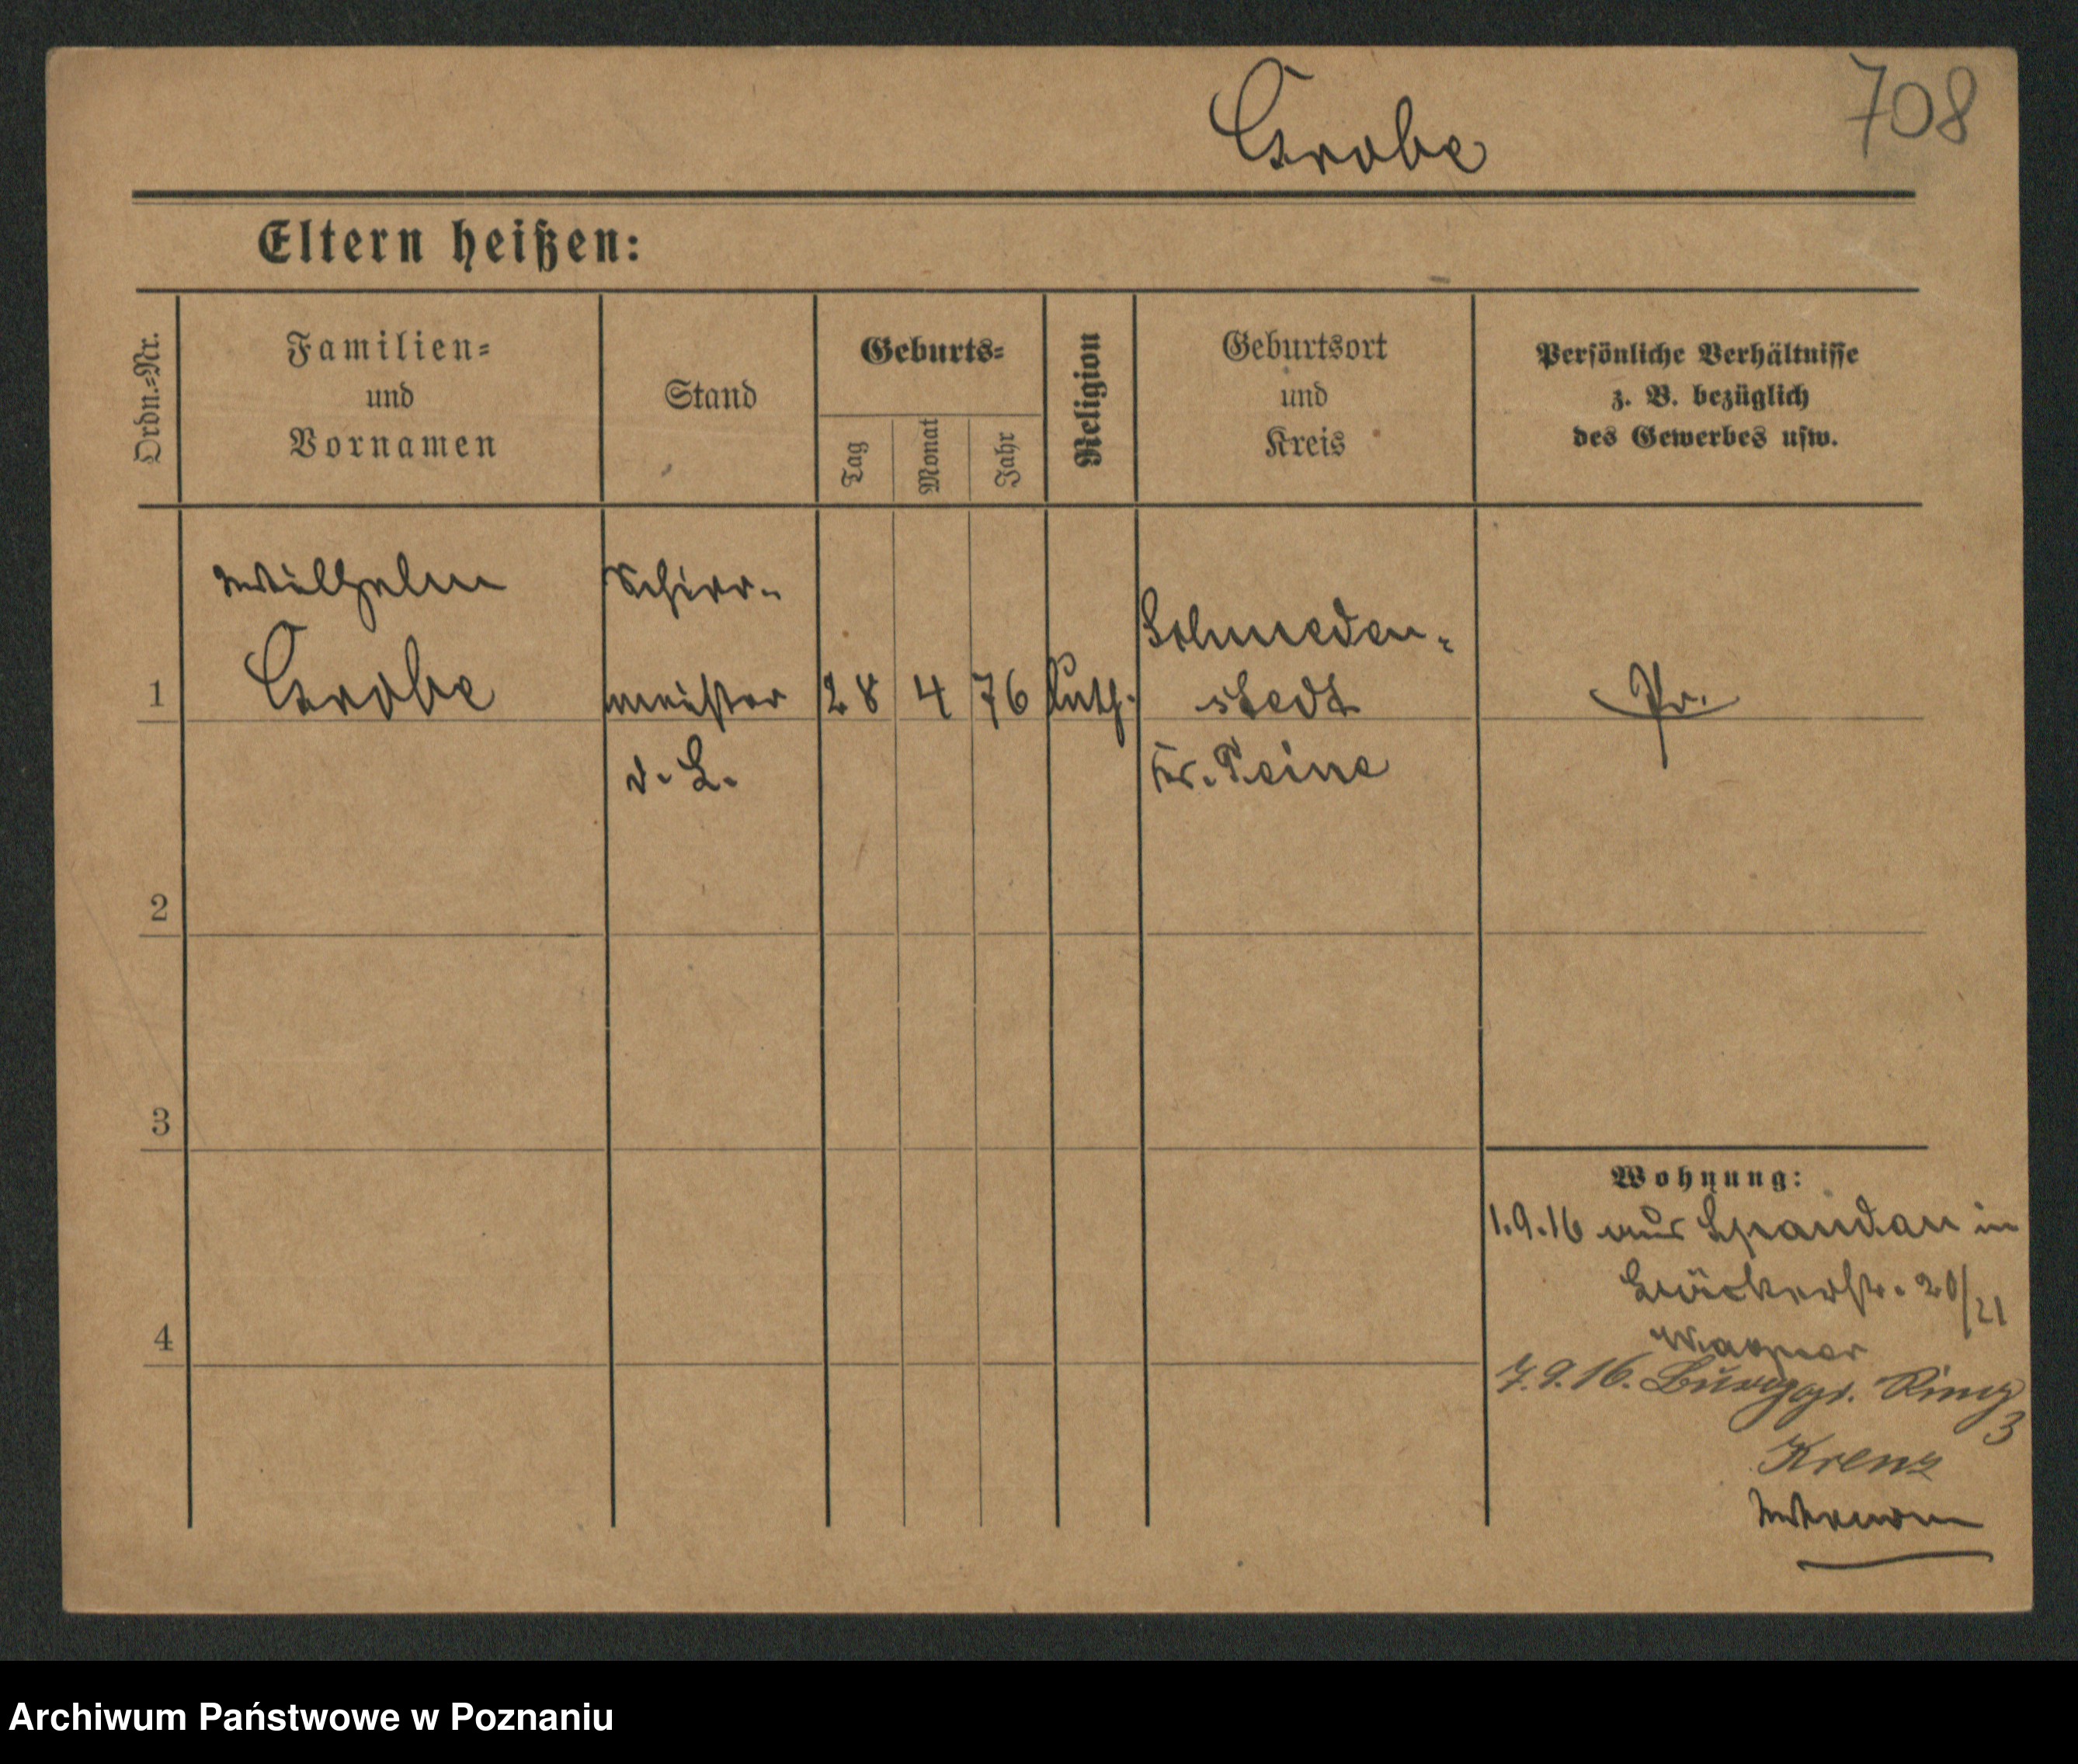 708
Grobe
Eltern heißen:
Ordn.-Nr.
Familien-
und
Vornamen
Stand
Geburts-
Tag
Monat
Jahr
Religion
Geburtsort
und
Kreis
Persönliche Verhältnisse
z. B. bezüglich
des Gewerbes usw.
1
Wilhelm
Grobe
Schirr-
meister
d. L.
28
4
76
luth.
Schmeden-
stedt
Kr. Peine
Pr.
2
3
4
Wohnung:
1.9.16 aus Spandau in
20/21
Wagner
7.9.16. Burggr. Ring
3
Krenz
Archiwum Państwowe w Poznaniu